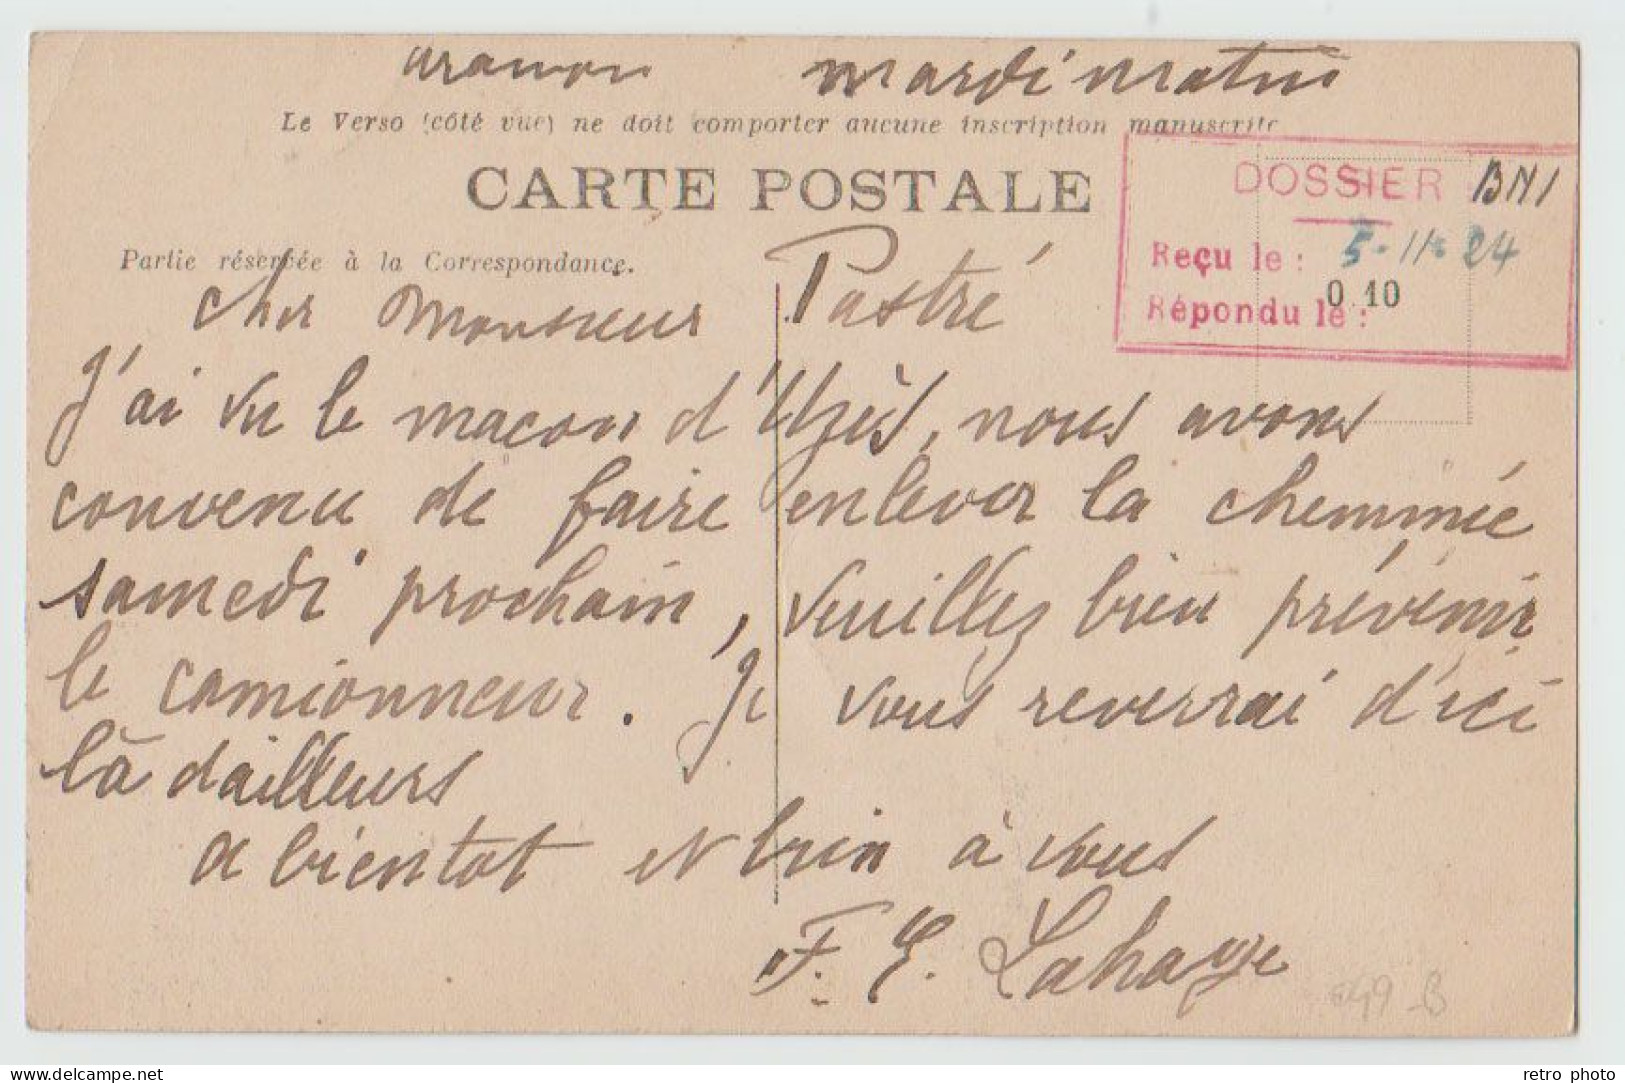 aramon mardi matin
Le Verso (côté vue) ne doit comporter aucune inscription manuscrite
CARTE POSTALE
DOSSIER BN1
Partie réservée à la Correspondance.
Reçu le : 5-11-24
0.10
Répondu le :
Cher Monsieur Pastré
J'ai vu le maçon d'Uzès, nous avons
convenu de faire enlever la cheminée
samedi prochain, veuillez bien prévenir
le camionneur. Je vous reverrai d'ici
là dailleurs
a bientot et bien à vous
F. E. Lahaye
retro photo
www.delcampe.net